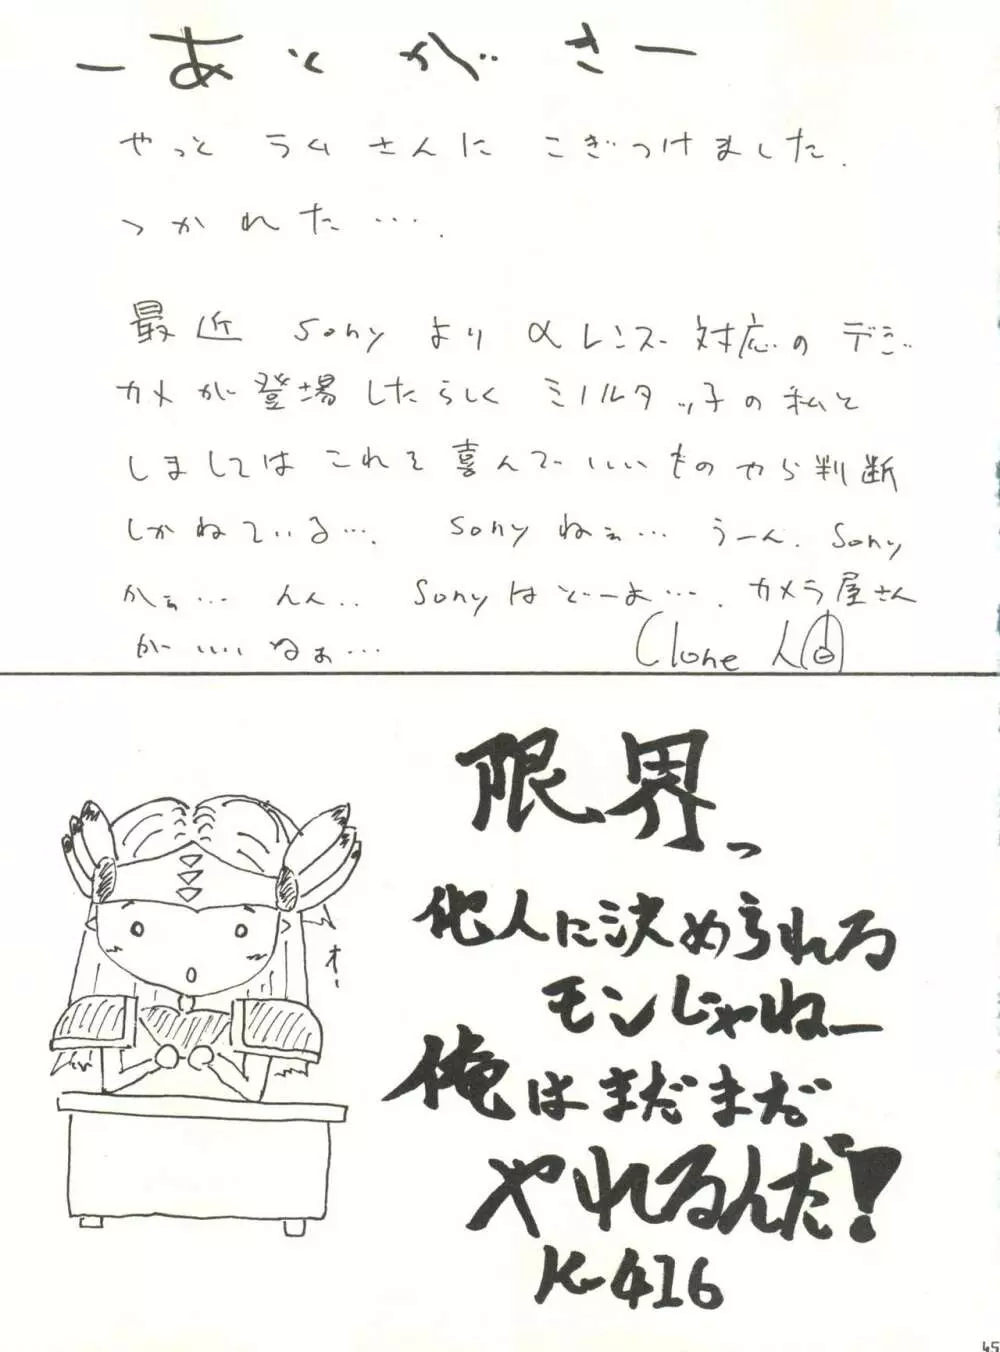 ーあとがきー
やっと ラムさんに こぎつけました.
つかれた….
最近 Sony より αレンズ対応のデジ
カメが登場したらしく ミノルタッ子の私と
しましては これを 喜んで いいものやら判断
しかねている…. Sony ねぇ… うーん. Sony
かぁ… んん.. Sony はどーよ…. カメラ屋さん
が いいねぇ…
Clone 人間
限界っ
他人に決められる
モンじゃねー
俺はまだまだ
やれるんだ!
K-416
オー
45